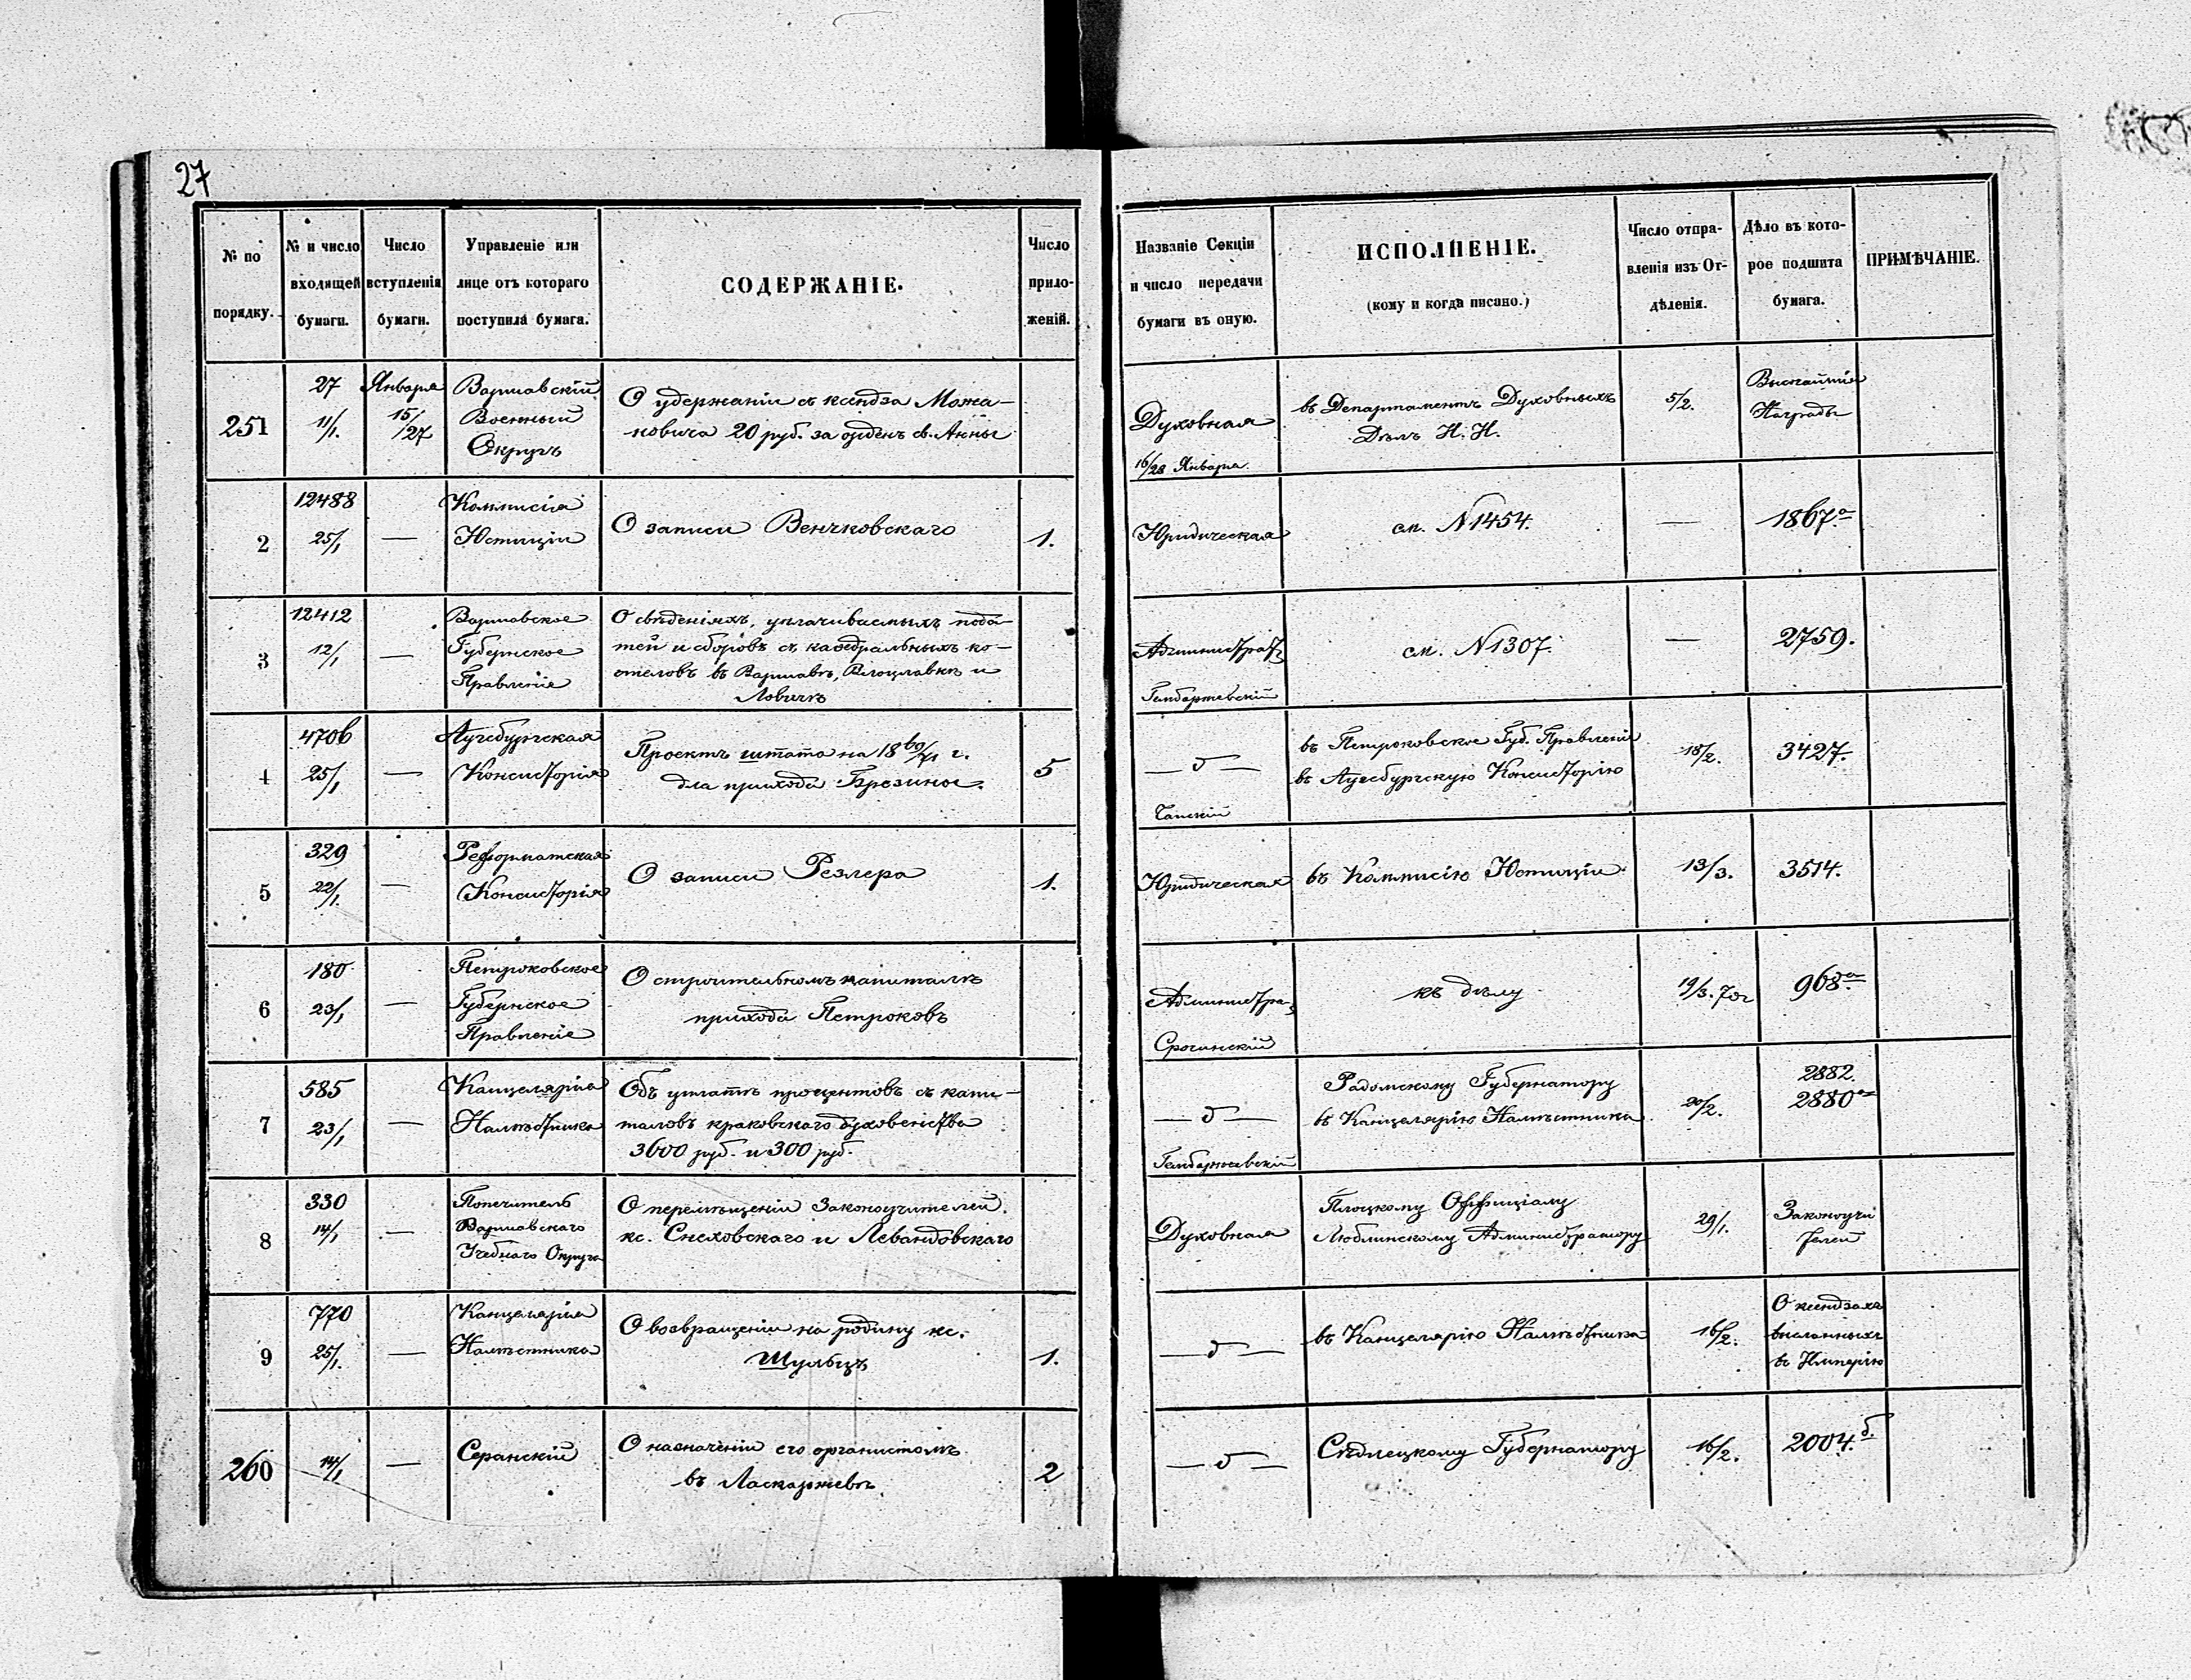 27
№ по порядку.
№ и число входящей бумаги.
Число вступленія бумаги.
Управленіе или лице отъ котораго поступила бумага.
СОДЕРЖАНІЕ.
Число прило-
женій.
Названіе Секціи и число передачи бумаги въ оную.
ИСПОЛНЕНІЕ.
(кому и когда писано.)
Число отпра-
вленія изъ От-
дѣленія.
Дѣло въ кото-
рое подшита бумага.
ПРИМѢЧАНІЕ.
251
27
11/1.
Января
15/27
Варшавскій
Военный
Округъ
О удержаніи съ ксендза Можа-
новича 20 руб. за орденъ св. Анны
Духовная
16/28 Января
въ Департаментъ Духовныхъ
Дѣлъ И. И.
5/2.
Высочайшія
Награды
2
12488
25/1
—
Коммисія
Юстиціи
О записи Венчковскаго
1.
Юридическая
см. N1454.
—
1867.а
3
12412
12/1
—
Варшавское
Губернское
Правленіе
О свѣденіяхъ, уплачиваемыхъ пода-
тей и сборовъ съ каѳедральныхъ ко-
стеловъ въ Варшавѣ, Влоцлавкѣ и
Ловичѣ
Администрат
см. N1307.
—
2759.
4
4706
25/1
—
Аугсбургская
Консисторія
Проектъ штата на 18 69/71 г.
для прихода Брезины.
5
— д —
въ Петроковское Губ. Правленіе
въ Аугсбургскую Консисторію
18/2.
3427.
5
329
22/1.
—
Реформатская
Консисторія
О записи Резлера
1.
Юридическая
въ Коммисію Юстиціи
13/3.
3514.
6
180
23/1
—
Петроковское
Губернское
Правленіе
О строительномъ капиталѣ
прихода Петроковъ
Администра
Срочинскій
къ дѣлу
19/3. 70г
968.а
7
585
23/1
—
Канцелярія
Намѣстника
Объ уплатѣ процентовъ съ капи-
таловъ краковскаго духовенства
3600 руб. и 300 руб.
— д —
Радомскому Губернатору
въ Канцелярію Намѣстника
20/2.
2882.
2880а
8
330
14/1
—
Попечитель
Варшавскаго
Учебнаго Округа
О перемѣщеніи Законоучителей
кс. Снеховскаго и Левандовскаго
Духовная
Плоцкому Оффиціалу
Люблинскому Администратору
29/1.
Законоучи
телей
9
770
25/1.
—
Канцелярія
Намѣстника
О возвращеніи на родину кс.
Шульцъ
1.
— д —
въ Канцелярію Намѣстника
16/2.
О ксендзахъ
высланныхъ
въ Имперію
260
14/1
—
Серанскій
О назначеніи его органистомъ
въ Ласкаржевѣ.
2
— д —
Сѣдлецкому Губернатору
16/2.
2004.б